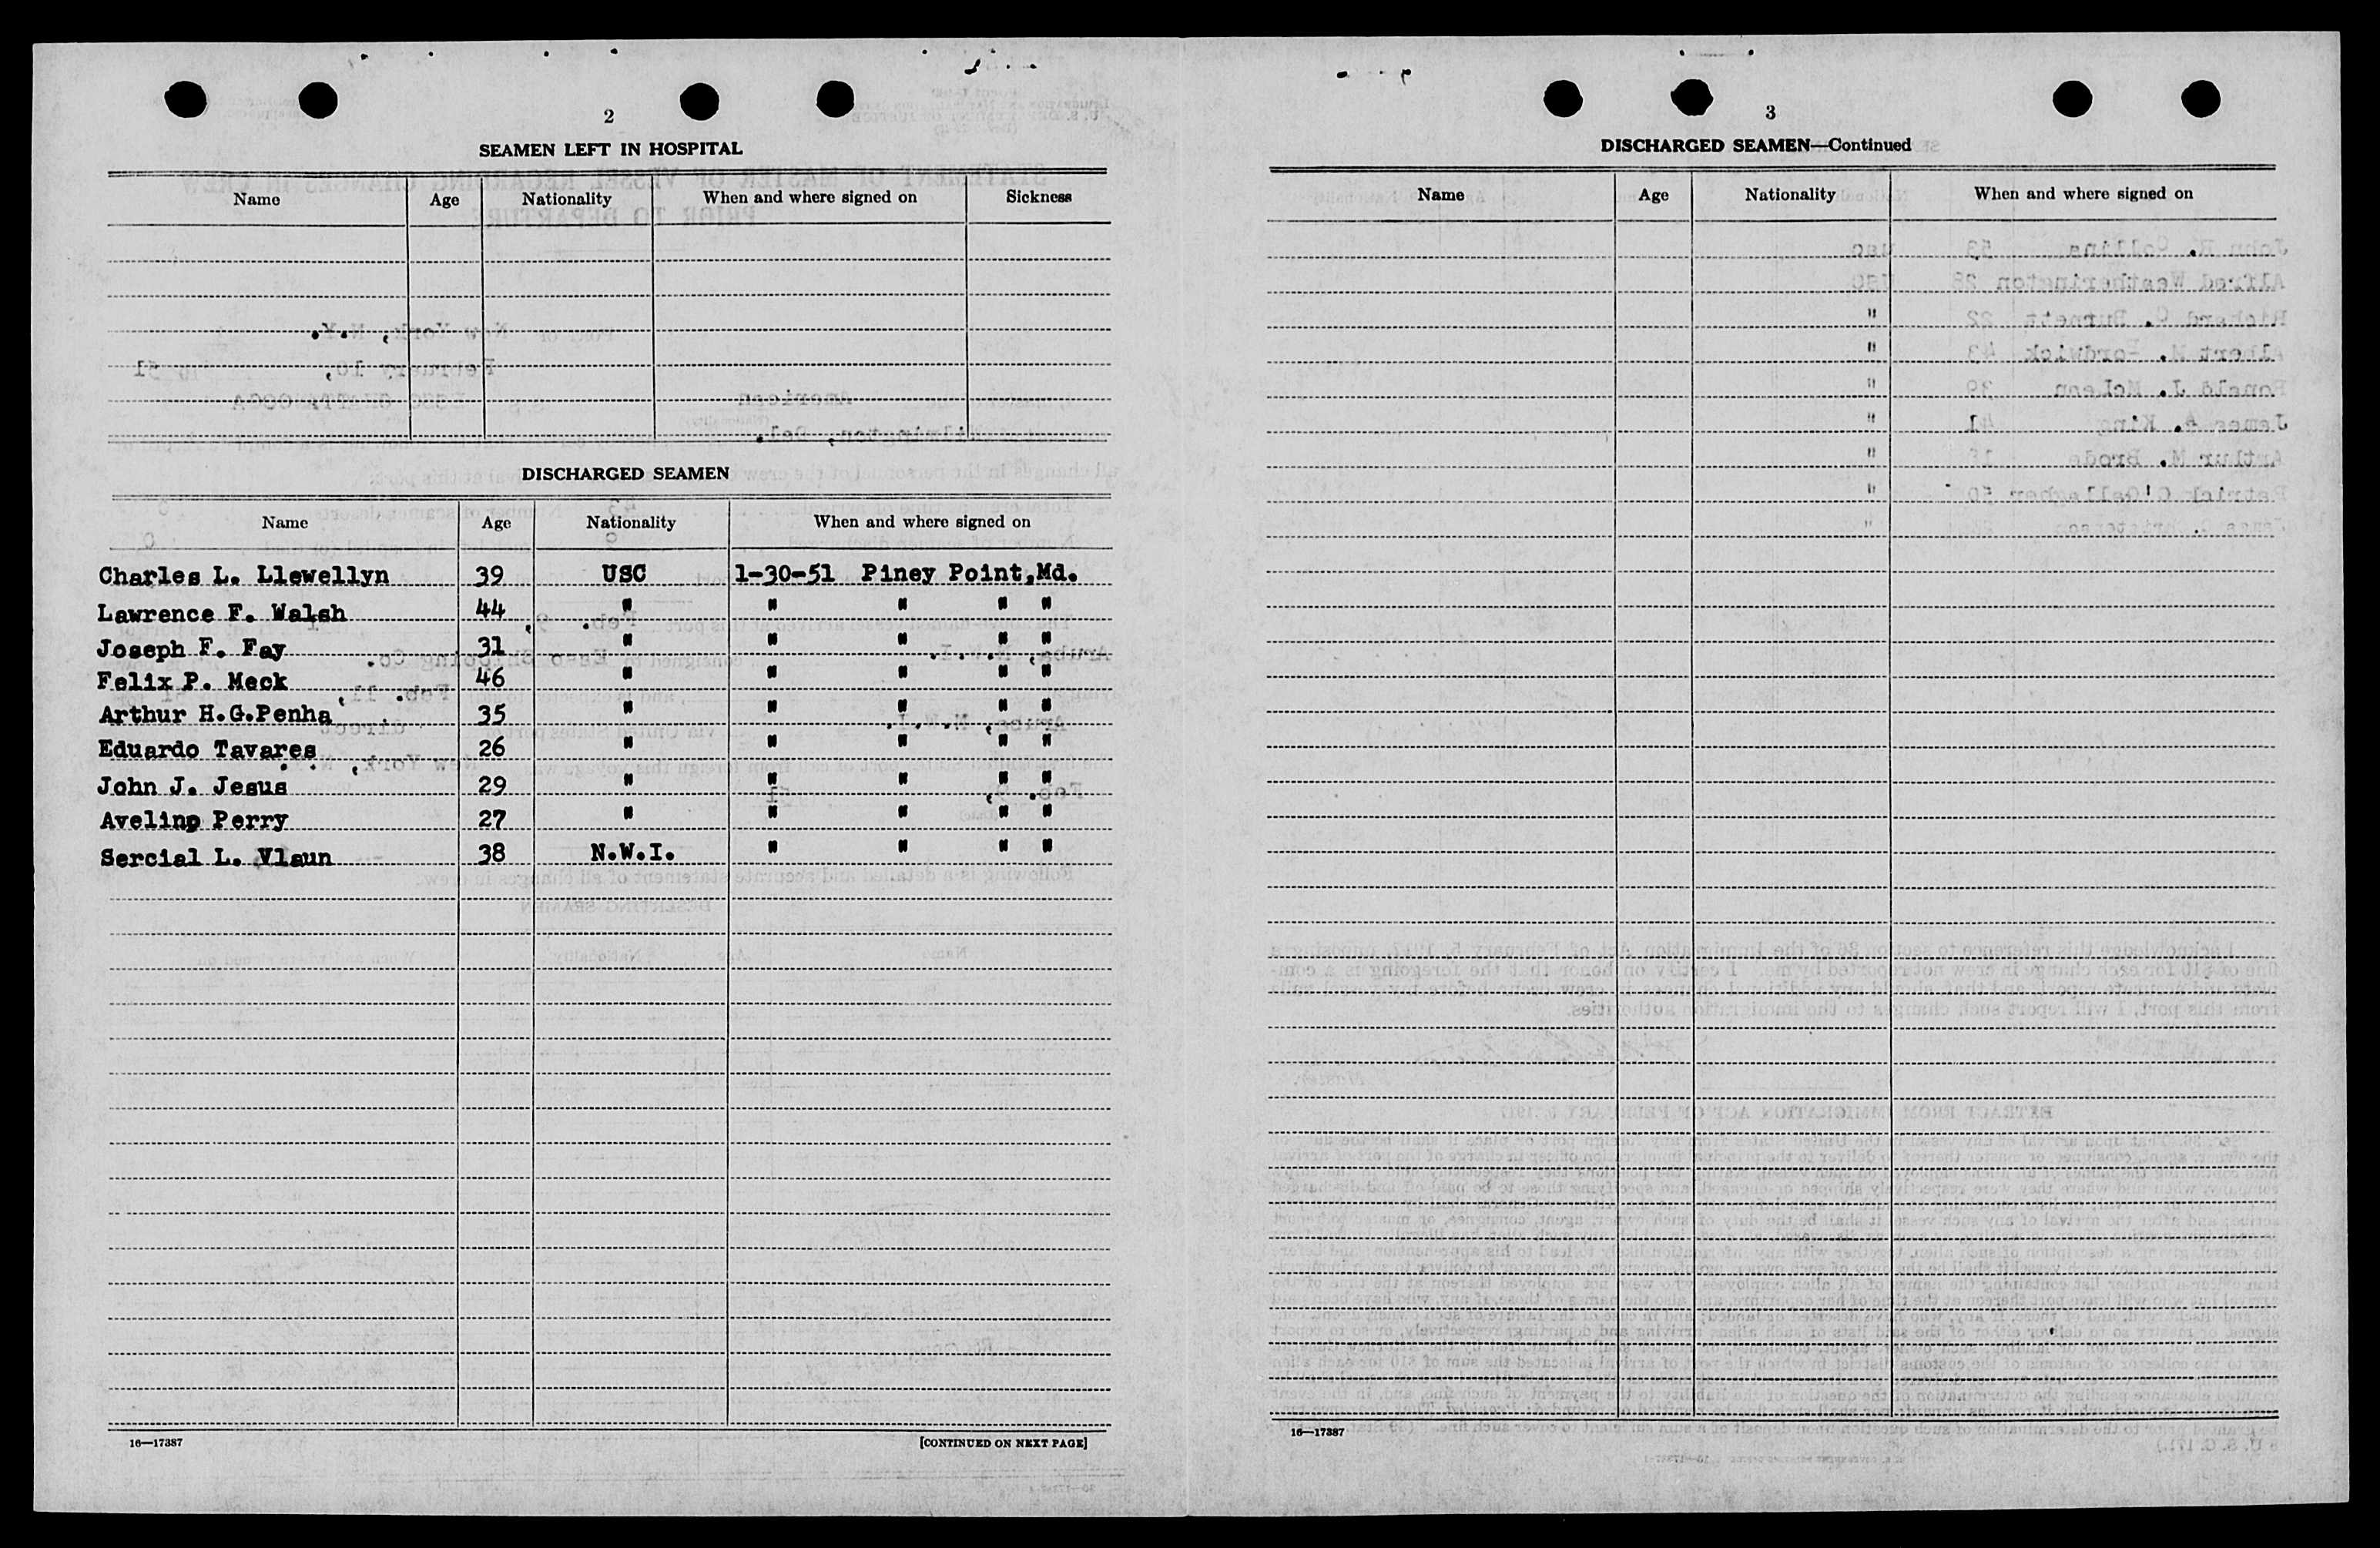 2
SEAMEN LEFT IN HOSPITAL
Name Age Nationality When and where signed on Sickness
DISCHARGED SEAMEN
Name Age Nationality When and where signed on
Charles L. Llewellyn 39 USC 1-30-51 Piney Point,Md.
Lawrence F. Walsh 44 " " " " "
Joseph F. Fay 31 " " " " "
Felix P. Meck 46 " " " " "
Arthur H.G.Penha 35 " " " " "
Eduardo Tavares 26 " " " " "
John J. Jesus 29 " " " " "
Avelino Perry 27 " " " " "
Sercial L. Vlaun 38 N.W.I. " " " "
16—17387 [CONTINUED ON NEXT PAGE]
3
DISCHARGED SEAMEN—Continued
Name Age Nationality When and where signed on
16—17387